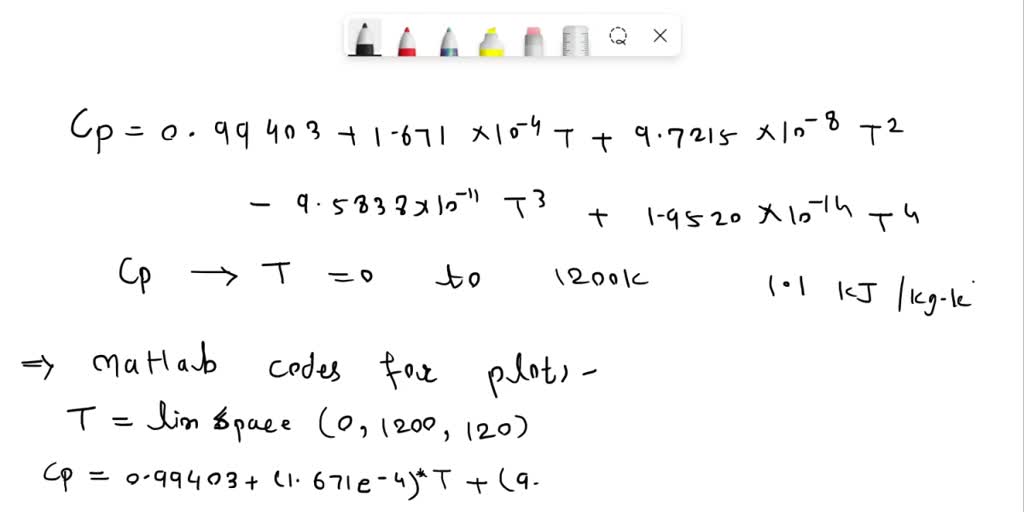 Cp = 0.99403 + 1.671 × 10⁻⁴ T + 9.7215 × 10⁻⁸ T²
− 9.5838 × 10⁻¹¹ T³ + 1.9520 × 10⁻¹⁴ T⁴
Cp → T = 0 to 1200K 1.1 kJ/kg-k
⇒ Matlab codes for plots -
T = linspace (0, 1200, 120)
Cp = 0.99403 + (1.671e-4)*T + (9.